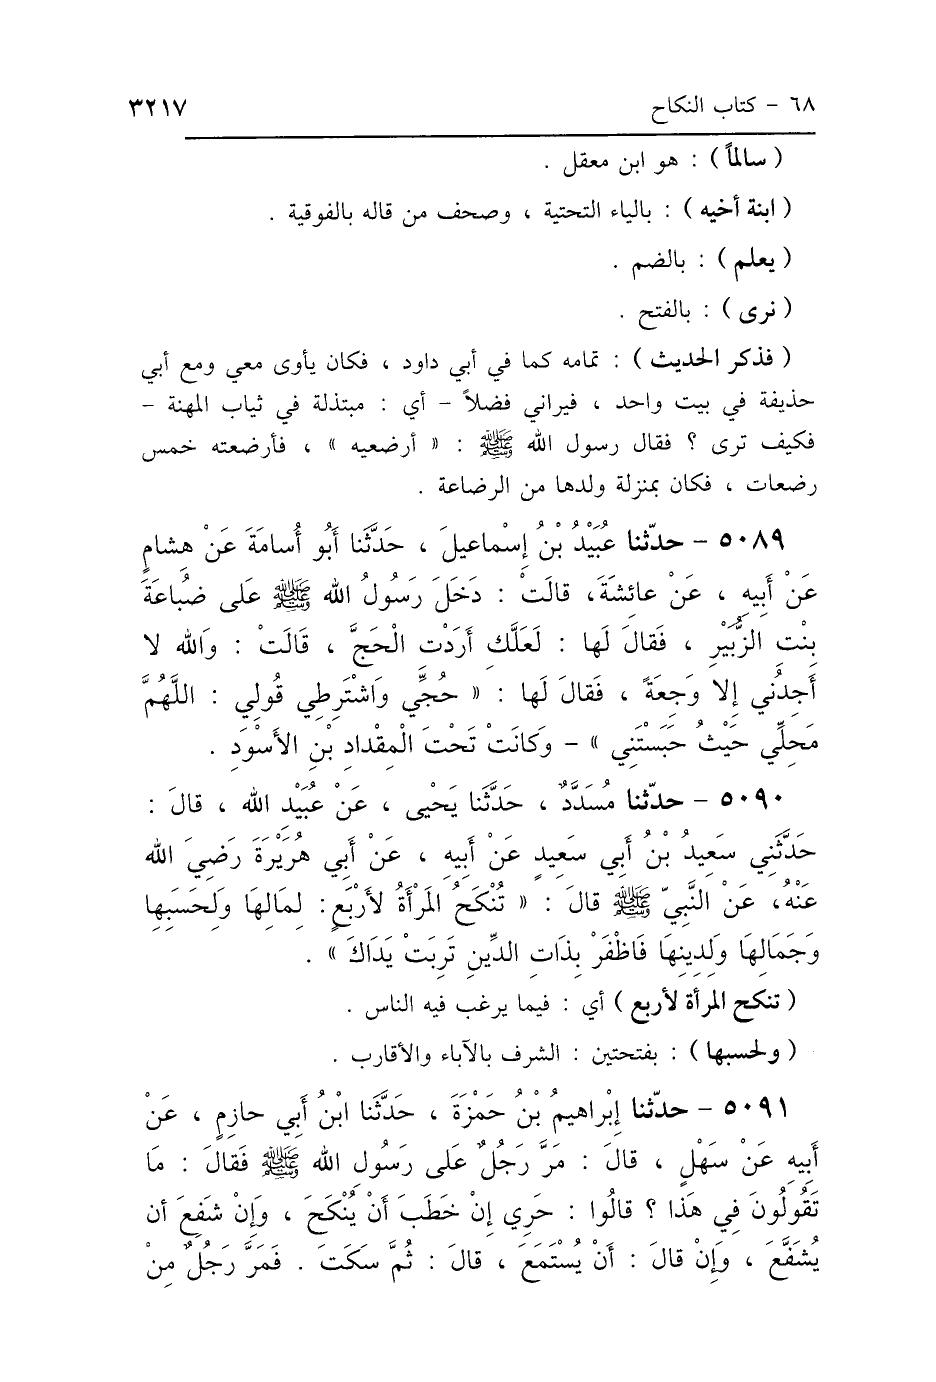 ٦٨ - كتاب النكاح ٣٢١٧
( سالماً ) : هو ابن معقل .
( ابنة أخيه ) : بالياء التحتية ، وصحف من قاله بالفوقية .
( يعلم ) : بالضم .
( نرى ) : بالفتح .
( فذكر الحديث ) : تمامه كما في أبي داود ، فكان يأوى معي ومع أبي
حذيفة في بيت واحد ، فيراني فضلاً - أي : مبتذلة في ثياب المهنة -
فكيف ترى ؟ فقال رسول الله ﷺ : « أرضعيه » ، فأرضعته خمس
رضعات ، فكان بمنزلة ولدها من الرضاعة .
٥٠٨٩ - حدّثنا عُبَيْدُ بْنُ إسْماعيلَ ، حَدَّثَنا أَبُو أُسامَةَ عَنْ هِشامٍ
عَنْ أَبِيهِ ، عَنْ عائِشَةَ، قالَتْ : دَخَلَ رَسُولُ الله ﷺ عَلى ضُباعَةَ
بِنْتِ الزُّبَيْرِ ، فَقالَ لَها : لَعَلَّكِ أَرَدْتِ الْحَجَّ ، قَالَتْ : وَالله لا
أَجِدُنِي إلا وَجِعَةً ، فَقالَ لَها : « حُجِّي وَاشْتَرِطِي قُولِي : اللَّهُمَّ
مَحِلِّي حَيْثُ حَبَسْتَنِي » - وَكانَتْ تَحْتَ الْمِقْدادِ بْنِ الأَسْوَدِ .
٥٠٩٠ - حدّثنا مُسَدَّدٌ ، حَدَّثَنا يَحْيى ، عَنْ عُبَيْدِ الله ، قالَ :
حَدَّثَنِي سَعِيدُ بْنُ أَبِي سَعِيدٍ عَنْ أَبِيهِ ، عَنْ أَبِي هُرَيْرَةَ رَضِيَ الله
عَنْهُ، عَنْ النَّبِيِّ ﷺ قالَ : « تُنْكَحُ المَرْأَةُ لأَرْبَعٍ: لِمَالِهَا وَلِحَسَبِهَا
وَجَمَالِهَا وَلِدِينِهَا فَاظْفَرْ بِذَاتِ الدِّينِ تَرِبَتْ يَدَاكَ » .
( تنكح المرأة لأربع ) أي : فيما يرغب فيه الناس .
( ولحسبها ) : بفتحتين : الشرف بالآباء والأقارب .
٥٠٩١ - حدّثنا إبْراهيمُ بْنُ حَمْزَةَ ، حَدَّثَنا ابْنُ أَبِي حازِمٍ ، عَنْ
أَبِيهِ عَنْ سَهْلٍ ، قالَ : مَرَّ رَجُلٌ عَلى رَسُولِ الله ﷺ فَقالَ : مَا
تَقُولُونَ فِي هَذا ؟ قالُوا : حَرِي إنْ خَطَبَ أَنْ يُنْكَحَ ، وَإِنْ شَفَعَ أن
يُشَفَّعَ ، وَإِنْ قالَ : أَنْ يُسْتَمَعَ ، قالَ : ثُمَّ سَكَتَ . فَمَرَّ رَجُلٌ مِنْ